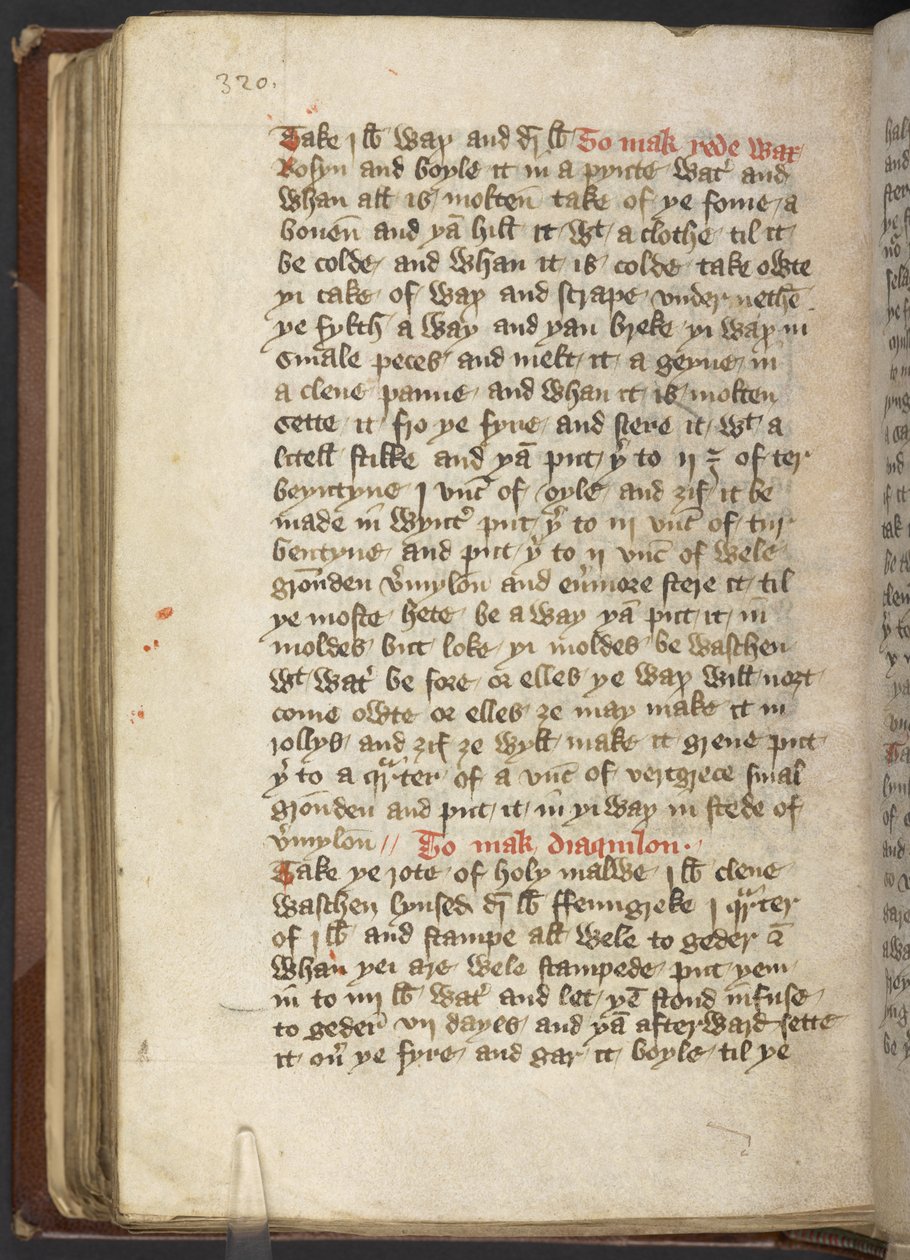 320.
Take j lb wax and dj lb To mak rede wax
Rosyn and boyle it in a pynte wat' and
whan all is molten take of ye fome a
bouen and yā hill it wt a clothe til it
be colde and whan it is colde take owte
yi cake of wax and scrape vnder nethē
ye fylth a way and yan breke yi wax in
smale peces and melt it a geyne in
a clene panne and whan it is molten
sette it fro ye fyre and stere it wt a
litell stikke and yā put y' to ij ℥ of ter
bentyne j vnc' of oyle and zif it be
made in wynt' put y' to iij vnc' of tur
bentyne and put y' to ij vnc' of wele
grōnden v'mylon and eu'more stere it til
ye moste hete be a way yā put it in
moldes but loke yi moldes be waschen
wt wat' be fore or elles ye wax will nozt
come owte or elles ze may make it in
rollys and zif ze wyll make it grene put
y' to a qrter of a vnc' of vertgrece smal
grōnden and put it in yi wax in stede of
v'mylon // To mak diaquilon.
Take ye rote of holy malwe j lb clene
waschen lynsed dj lb ffenngreke j qrter
of j lb and stampe all wele to geder &
whan yei are wele stampede put yem
in to iiij lb wat' and let yē stond infuse
to geder vij dayes and yā afterward sette
it ou' ye fyre and gar it boyle til ye